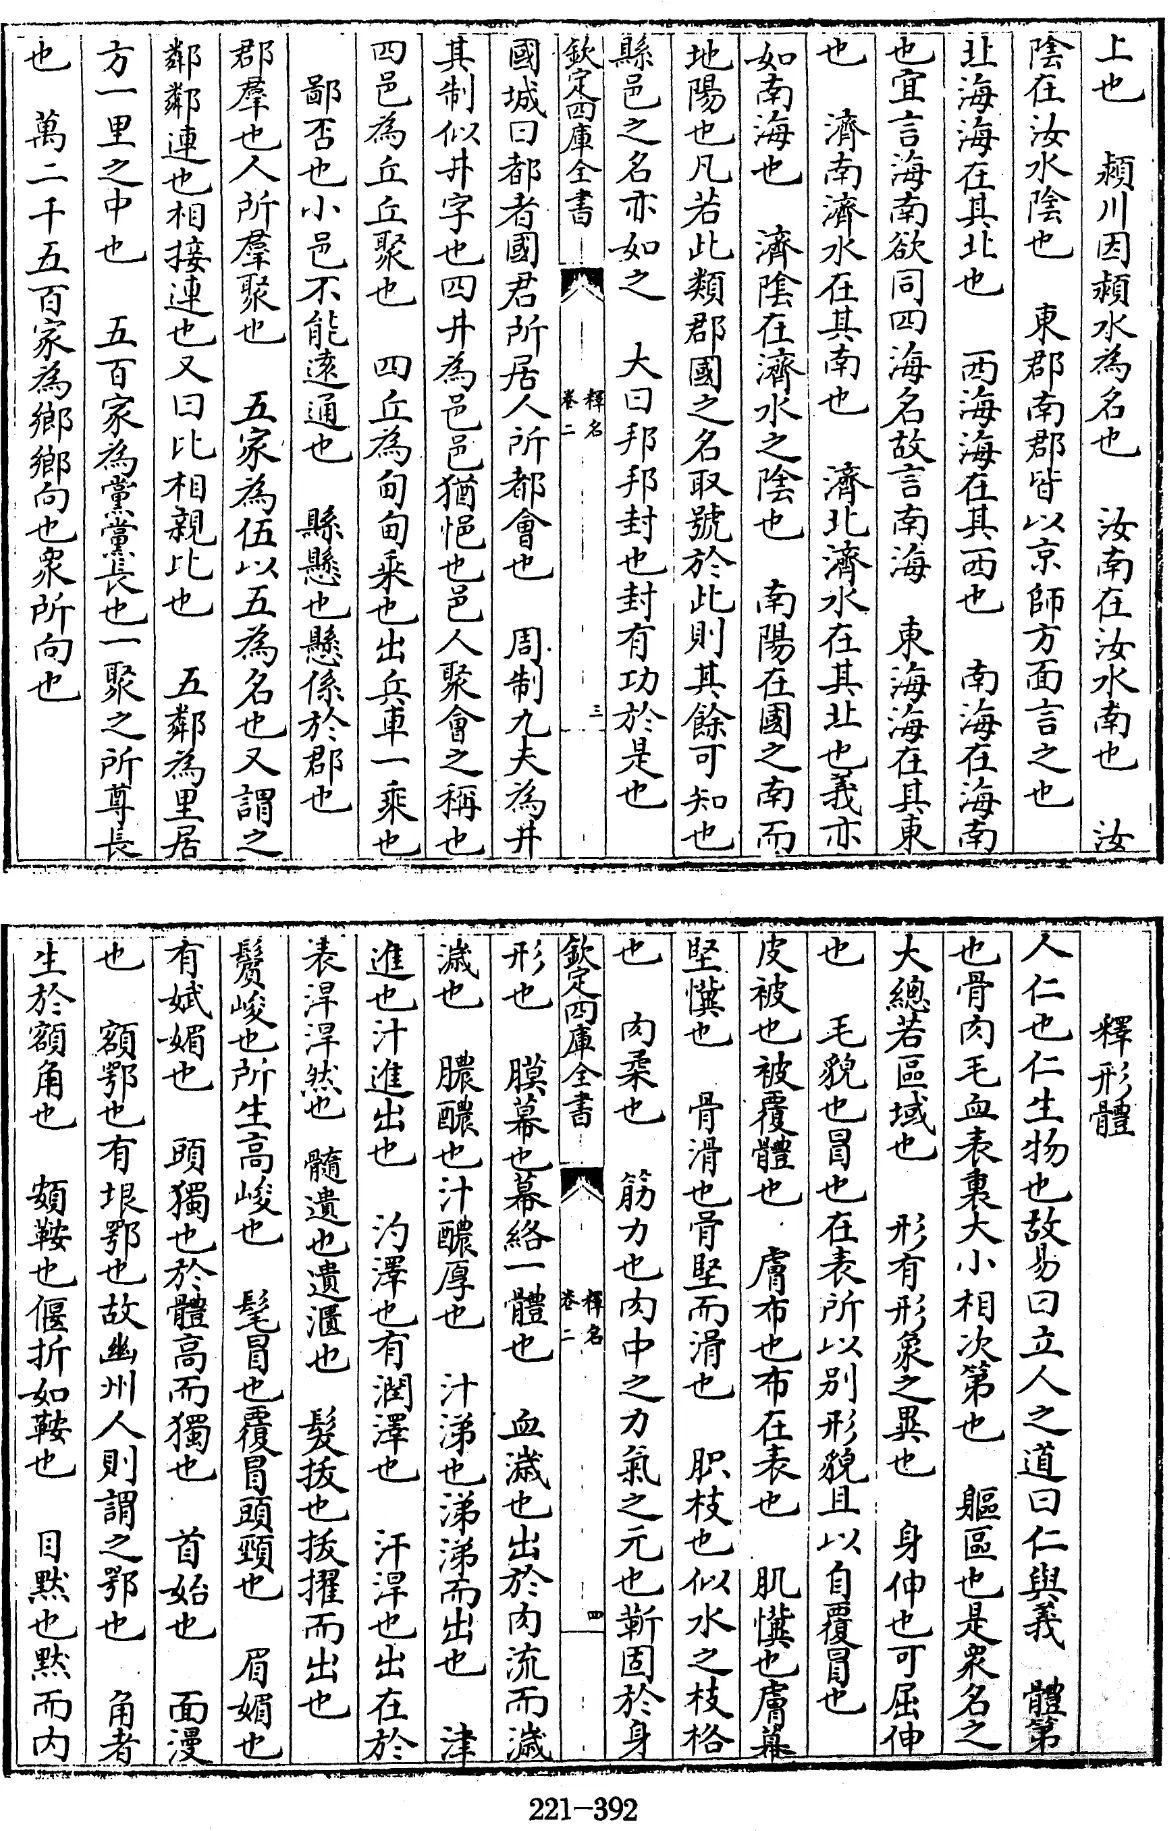 上也 潁川因潁水為名也 汝南在汝水南也 汝
陰在汝水陰也 東郡南郡皆以京師方面言之也
北海海在其北也 西海海在其西也 南海在海南
也宜言海南欲同四海名故言南海 東海海在其東
也 濟南濟水在其南也 濟北濟水在其北也義亦
如南海也 濟陰在濟水之陰也 南陽在國之南而
地陽也凡若此類郡國之名取號於此則其餘可知也
縣邑之名亦如之 大曰邦邦封也封有功於是也
欽定四庫全書 釋名 卷二 三
國城曰都者國君所居人所都會也 周制九夫為井
其制似井字也四井為邑邑猶悒也邑人聚會之稱也
四邑為丘丘聚也 四丘為甸甸乘也出兵車一乘也
鄙否也小邑不能遠通也 縣懸也懸係於郡也
郡羣也人所羣聚也 五家為伍以五為名也又謂之
鄰鄰連也相接連也又曰比相親比也 五鄰為里居
方一里之中也 五百家為黨黨長也一聚之所尊長
也 萬二千五百家為鄉鄉向也衆所向也
釋形體
人仁也仁生物也故易曰立人之道曰仁與義 體第
也骨肉毛血表裏大小相次第也 軀區也是衆名之
大總若區域也 形有形象之異也 身伸也可屈伸
也 毛貌也冒也在表所以別形貌且以自覆冒也
皮被也被覆體也 膚布也布在表也 肌懻也膚幕
堅懻也 骨滑也骨堅而滑也 胑枝也似水之枝格
也 肉柔也 筋力也肉中之力氣之元也靳固於身
欽定四庫全書 釋名 卷二 四
形也 膜幕也幕絡一體也 血濊也出於肉流而濊
濊也 膿醲也汁醲厚也 汁涕也涕涕而出也 津
進也汁進出也 汋澤也有潤澤也 汗淖也出在於
表淖淖然也 髓遺也遺𣿉也 髮拔也拔擢而出也
鬢峻也所生高峻也 髦冒也覆冒頭頸也 眉媚也
有娬媚也 頭獨也於體高而獨也 首始也 面漫
也 額鄂也有垠鄂也故幽州人則謂之鄂也 角者
生於額角也 頞鞍也偃折如鞍也 目默也默而內
221-392